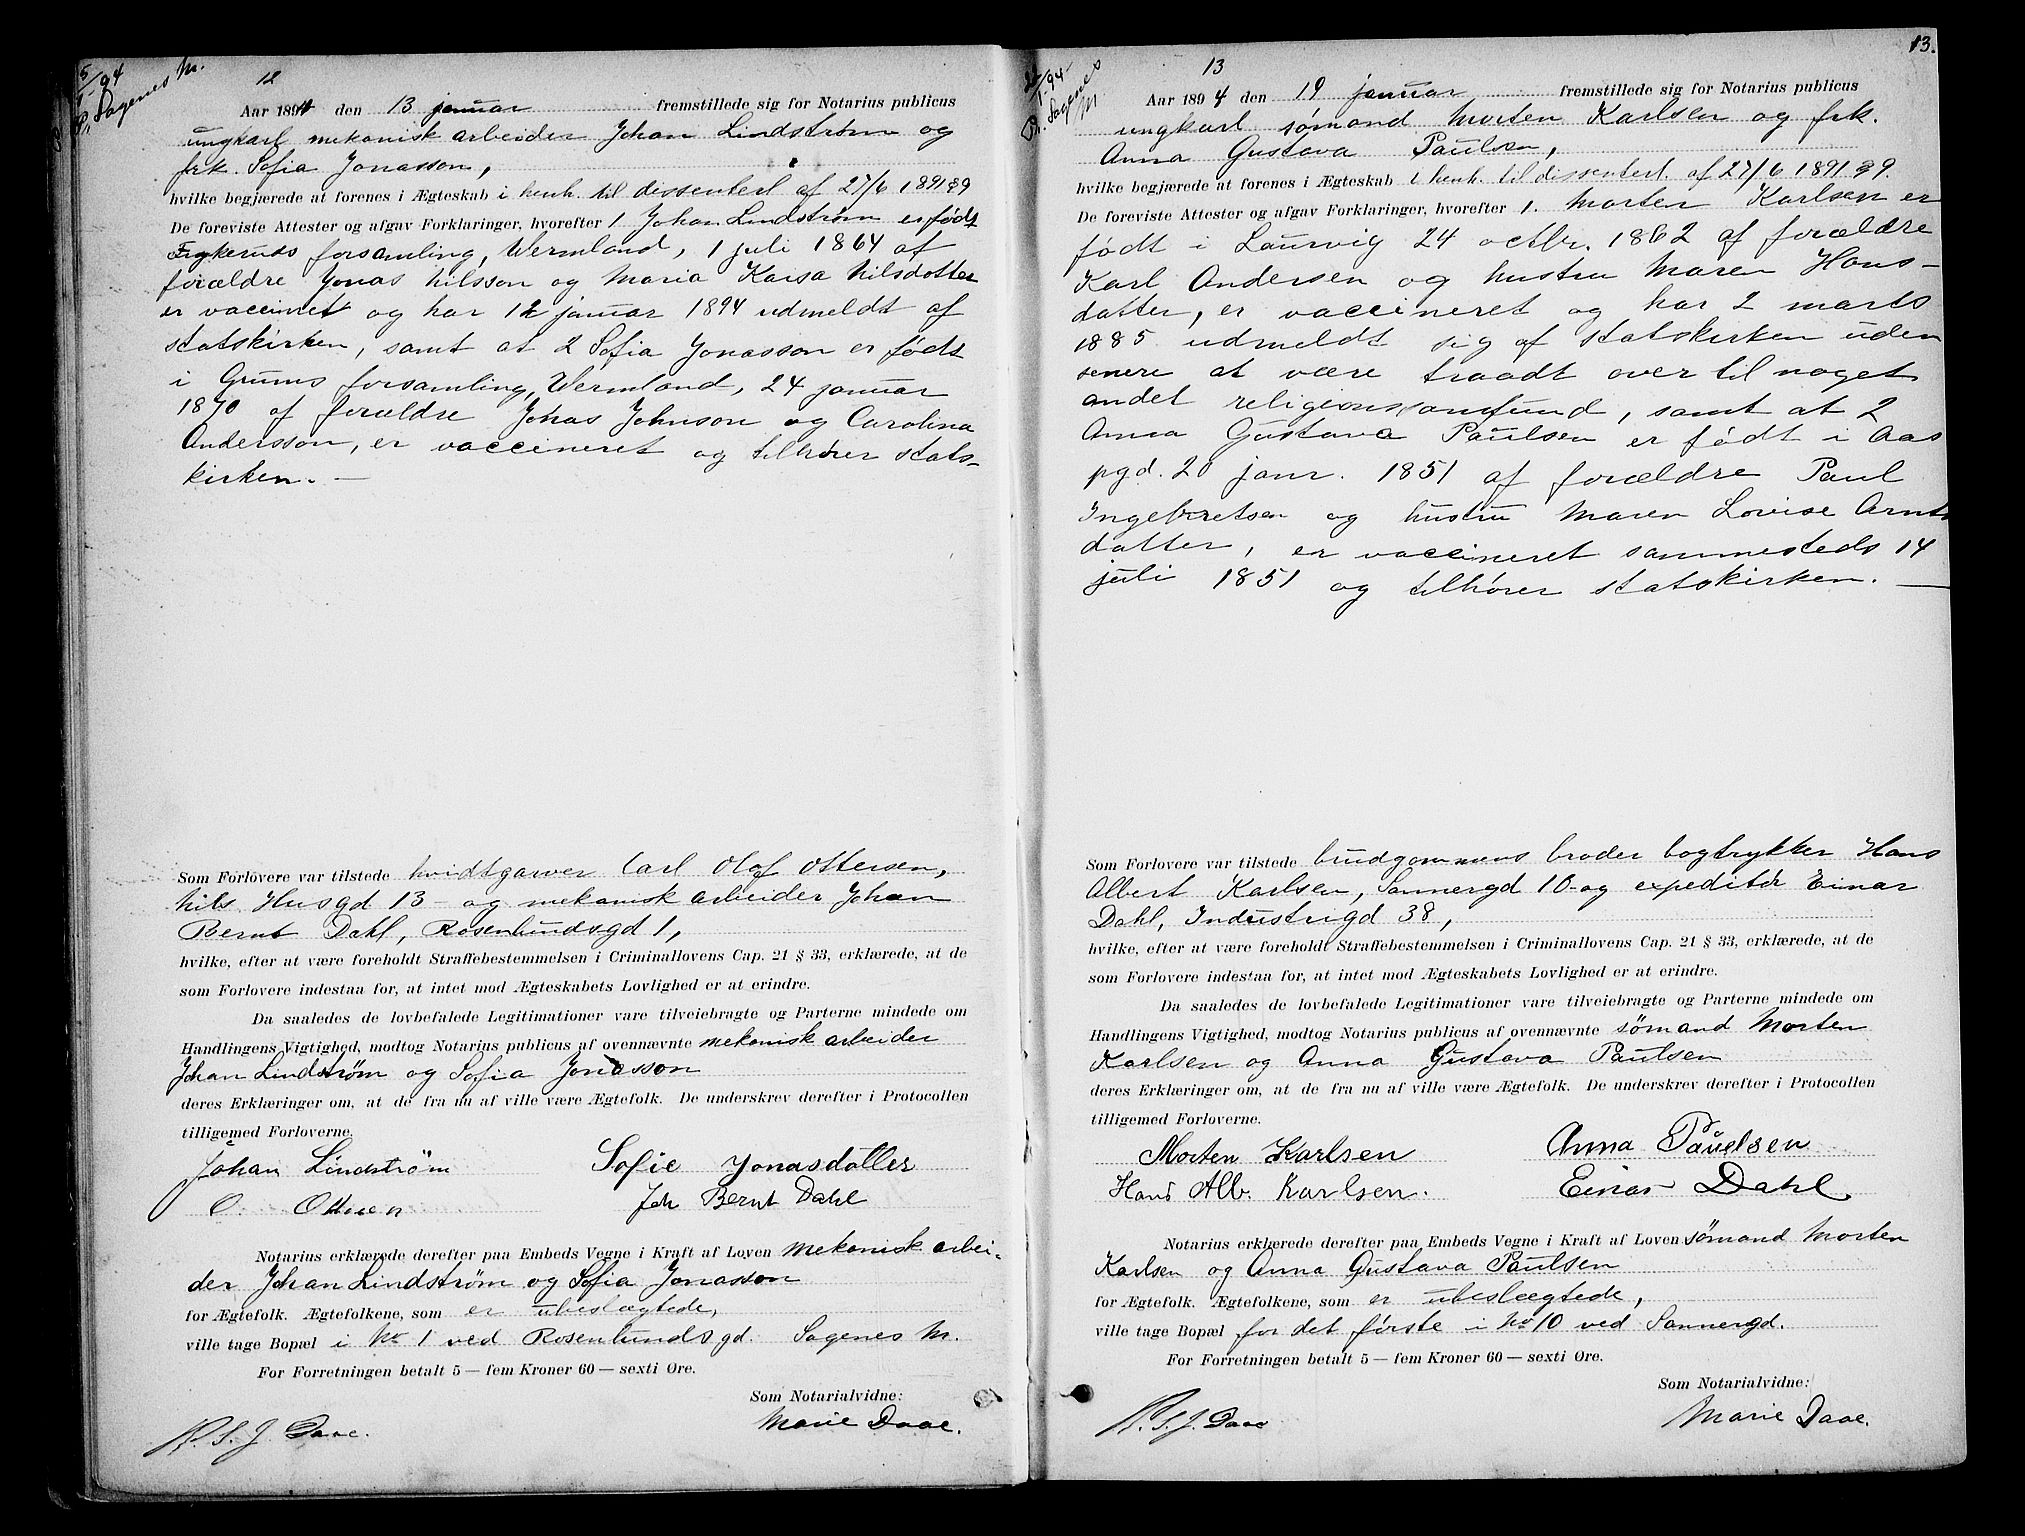 5/1-94
Pr. Sagenes M.
12
Aar 1894 den 13 januar fremstillede sig for Notarius publicus
ungkarl mekanisk arbeider Johan Lindstrøm og
frk. Sofia Jonasson,
hvilke begjærede at forenes i Ægteskab i henh. til dissenterl af 27/6 1891 § 9
De foreviste Attester og afgav Forklaringer, hvorefter 1 Johan Lindstrøm er født
Frykeruds forsamling, Wermland, 1 juli 1864 af
forældre Jonas Nilsson og Maria Kaisa Nilsdotter
er vaccinet og har 12 januar 1894 udmeldt af
statskirken, samt at 2 Sofia Jonasson er født
i Grums forsamling, Wermland, 24 januar
1870 af forældre Jonas Johnson og Carolina
Andersson, er vaccineret og tilhører stats-
kirken. —
Som Forlovere var tilstede hvidtgarver Carl Olof Ottersen,
Nils Husgd 13 - og mekanisk arbeider Johan
Bernt Dahl, Rosenlundsgd 1,
hvilke, efter at være foreholdt Straffebestemmelsen i Criminallovens Cap. 21 § 33, erklærede, at de
som Forlovere indestaa for, at intet mod Ægteskabets Lovlighed er at erindre.
Da saaledes de lovbefalede Legitimationer vare tilveiebragte og Parterne mindede om
Handlingens Vigtighed, modtog Notarius publicus af ovennævnte mekanisk arbeider
Johan Lindstrøm og Sofia Jonasson
deres Erklæringer om, at de fra nu af ville være Ægtefolk. De underskrev derefter i Protocollen
tilligemed Forloverne.
Johan Lindström Sofie Jonasdotter
O. Joh Bernt Dahl
Notarius erklærede derefter paa Embeds Vegne i Kraft af Loven mekanisk arbei-
der Johan Lindstrøm og Sofia Jonasson
for Ægtefolk. Ægtefolkene, som er ubeslægtede,
ville tage Bopæl i No 1 ved Rosenlundsgd. Sagenes M.
For Forretningen betalt 5 — fem Kroner 60 — sexti Øre.
Som Notarialvidne:
Marie Daae.
Daae.
13.
1-94
Pr. Sagenes
M
13
Aar 1894 den 19 januar fremstillede sig for Notarius publicus
ungkarl sømand Morten Karlsen og frk.
Anna Gustava Paulsen,
hvilke begjærede at forenes i Ægteskab i henh. til dissenterl. af 27/6 1891 § 9.
De foreviste Attester og afgav Forklaringer, hvorefter 1. Morten Karlsen er
født i Laurvig 24 octbr. 1862 af forældre
Karl Andersen og hustru Maren Hans-
datter, er vaccineret og har 2 marts
1885 udmeldt sig af statskirken uden
senere at være traadt over til noget
andet religionssamfund, samt at 2
Anna Gustava Paulsen er født i Aas
pgd. 20 janr. 1851 af forældre Paul
Ingebretsen og hustru Maren Lovise Arnts
datter, er vaccineret sammesteds 14
juli 1851 og tilhører statskirken. —
Som Forlovere var tilstede brudgommens broder bogtrykker Hans
Albert Karlsen, Sannergd 10 - og expeditør Einar
Dahl, Industrigd 38,
hvilke, efter at være foreholdt Straffebestemmelsen i Criminallovens Cap. 21 § 33, erklærede, at de
som Forlovere indestaa for, at intet mod Ægteskabets Lovlighed er at erindre.
Da saaledes de lovbefalede Legitimationer vare tilveiebragte og Parterne mindede om
Handlingens Vigtighed, modtog Notarius publicus af ovennævnte sømand Morten
Karlsen og Anna Gustava Paulsen
deres Erklæringer om, at de fra nu af ville være Ægtefolk. De underskrev derefter i Protocollen
tilligemed Forloverne.
Morten Karlsen Anna Pauelsen
Hans Alb. Karlsen. Einar Dahl
Notarius erklærede derefter paa Embeds Vegne i Kraft af Loven sømand Morten
Karlsen og Anna Gustava Paulsen
for Ægtefolk. Ægtefolkene, som er ubeslægtede,
ville tage Bopæl for det første i No 10 ved Sannergd.
For Forretningen betalt 5 — fem Kroner 60 — sexti Øre.
Som Notarialvidne:
Marie Daae.
Daae